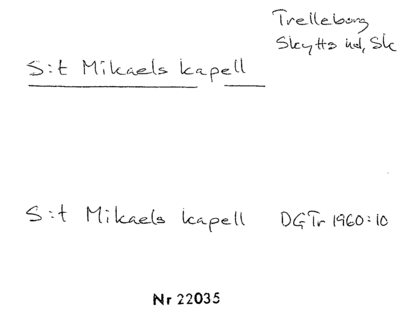 Trelleborg
Skytts hd, Sk
S:t Mikaels kapell
S:t Mikaels kapell DGTr 1960:10
Nr 22035